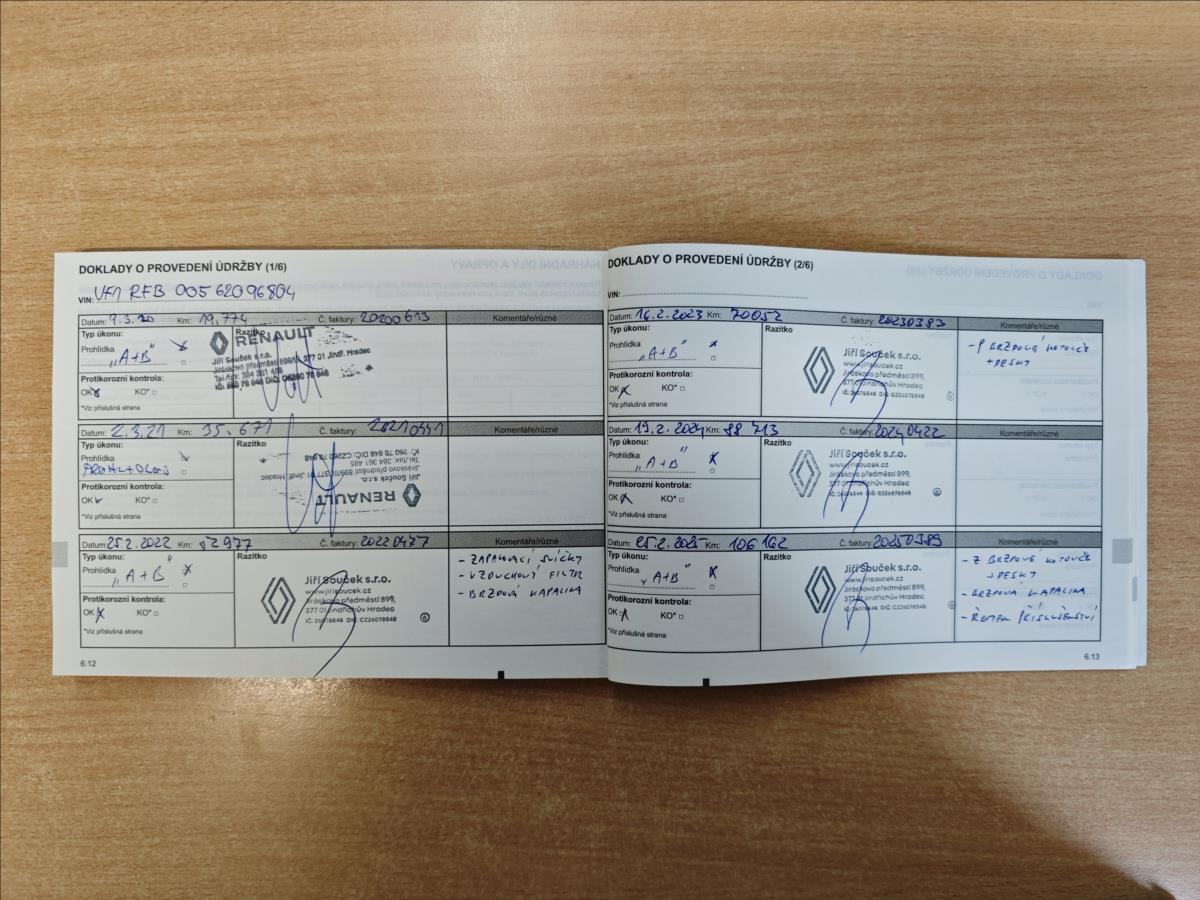 DOKLADY O PROVEDENÍ ÚDRŽBY (1/6)
VIN: VF1 RFB 00562096804
Datum: 9.3.20 Km: 19,774 Č. faktury: 20200613 Komentáře/různé
Typ úkonu:
Prohlídka
"A+B"
Razítko
RENAULT
Jiří Souček s.r.o.
Jiráskovo předměstí 899/III, 377 01 Jindř. Hradec
Tel./fax: 384 361 485
IČ: 260 78 848 DIČ: CZ260 78 848
Protikorozní kontrola:
OK KO*
*Viz příslušná strana
Datum: 2.3.21 Km: 35.671 Č. faktury: Komentáře/různé
Typ úkonu:
Prohlídka
Razítko
RENAULT
Jiří Souček s.r.o.
Jiráskovo předměstí 899/III, 377 01 Jindř. Hradec
Tel./fax: 384 361 485
IČ: 260 78 848 DIČ: CZ260 78 848
Protikorozní kontrola:
OK KO*
*Viz příslušná strana
Datum: 25.2.2022 Km: 52977 Č. faktury: 20220477 Komentáře/různé
Typ úkonu:
Prohlídka
"A+B"
Razítko
Jiří Souček s.r.o.
www.jirisoucek.cz
Jiráskovo předměstí 899,
377 01 Jindřichův Hradec
IČ: 26078848 DIČ: CZ26078848
- ZAPALOVACÍ SVÍČKY
- VZDUCHOVÝ FILTR
- BRZDOVÁ KAPALINA
Protikorozní kontrola:
OK KO*
*Viz příslušná strana
6.12
DOKLADY O PROVEDENÍ ÚDRŽBY (2/6)
VIN:
Datum: 16.2.2023 Km: 70052 Č. faktury: 20230383 Komentáře/různé
Typ úkonu:
Prohlídka
"A+B"
Razítko
Jiří Souček s.r.o.
www.jirisoucek.cz
Jiráskovo předměstí 899,
377 01 Jindřichův Hradec
IČ: 26078848 DIČ: CZ26078848
- P BRZDOVÉ KOTOUČE
+ DESKY
Protikorozní kontrola:
OK KO*
*Viz příslušná strana
Datum: 19.2.2024 Km: 88713 Č. faktury: 20240422 Komentáře/různé
Typ úkonu:
Prohlídka
"A+B"
Razítko
Jiří Souček s.r.o.
www.jirisoucek.cz
Jiráskovo předměstí 899,
377 01 Jindřichův Hradec
IČ: 26078848 DIČ: CZ26078848
Protikorozní kontrola:
OK KO*
*Viz příslušná strana
Datum: 25.2.2025 Km: 106162 Č. faktury: 20250389 Komentáře/různé
Typ úkonu:
Prohlídka
"A+B"
Razítko
Jiří Souček s.r.o.
www.jirisoucek.cz
Jiráskovo předměstí 899,
377 01 Jindřichův Hradec
IČ: 26078848 DIČ: CZ26078848
- Z BRZDOVÉ KOTOUČE
+ DESKY
- BRZDOVÁ KAPALINA
- ŘEMEN PŘÍSLUŠENSTVÍ
Protikorozní kontrola:
OK KO*
*Viz příslušná strana
6.13